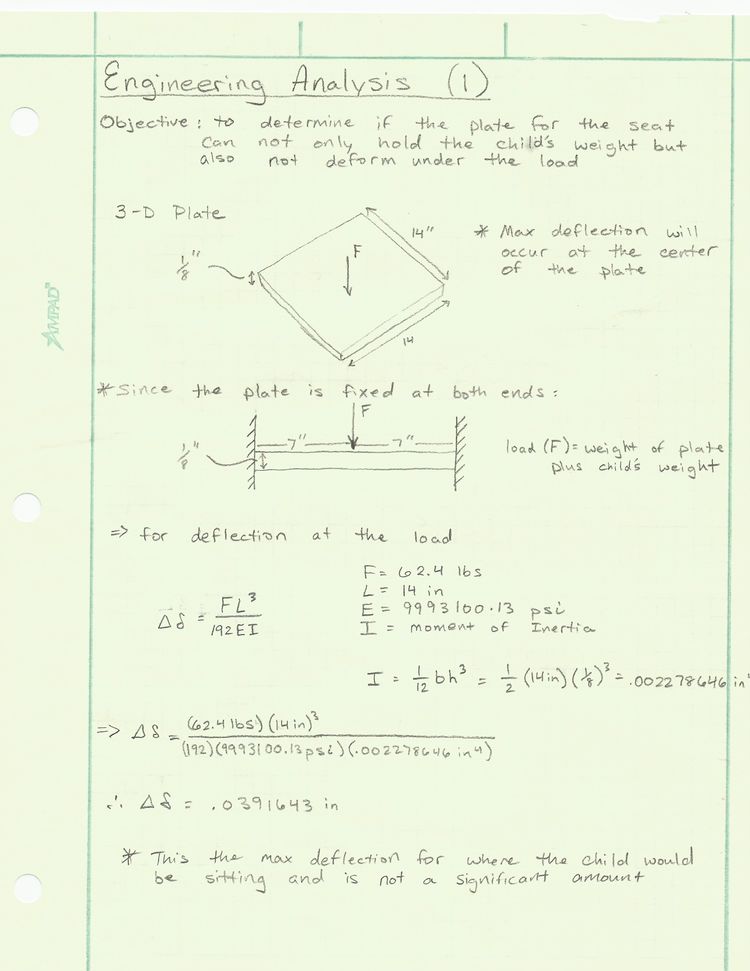 Engineering Analysis (1)
Objective: to determine if the plate for the seat
can not only hold the child's weight but
also not deform under the load
3-D Plate
14"
* Max deflection will
occur at the center
of the plate
F
1/8"
14
AMPAD
* Since the plate is fixed at both ends:
F
7" 7"
1/8"
load (F) = weight of plate
plus child's weight
=> for deflection at the load
F = 62.4 lbs
L = 14 in
E = 9993100.13 psi
I = moment of Inertia
Δδ = FL³/192EI
I = 1/12 bh³ = 1/2 (14in)(1/8)³ = .002278646 in⁴
=> Δδ = (62.4 lbs)(14 in)³/(192)(9993100.13psi)(.002278646 in⁴)
∴ Δδ = .0391643 in
* This the max deflection for where the child would
be sitting and is not a significant amount